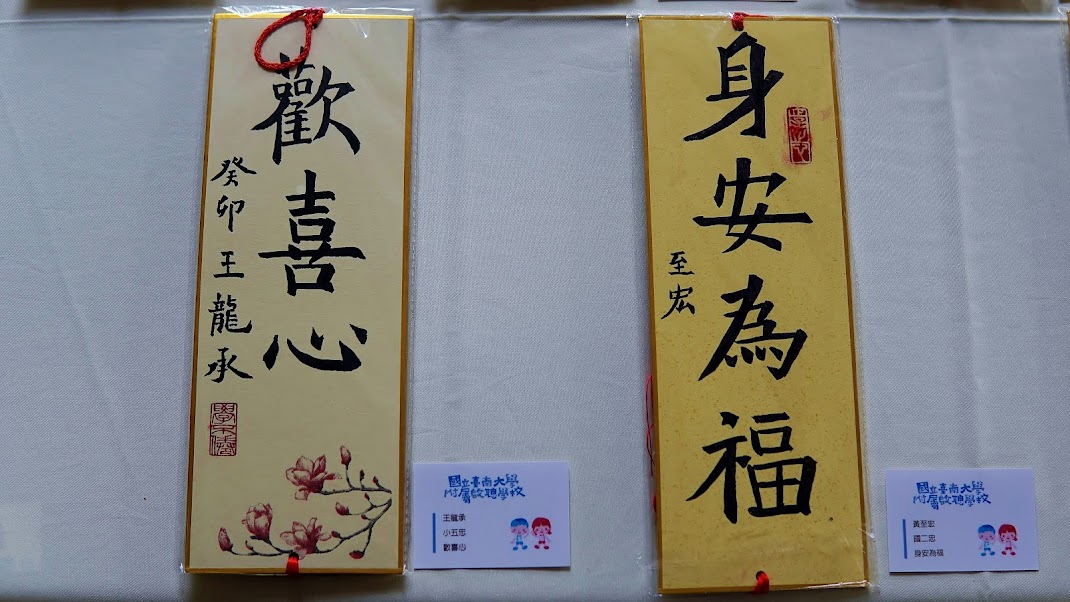 歡喜心
癸卯 王龍承
學不倦
身安為福
至宏
國立臺南大學
附屬啟聰學校
王龍承
小五忠
歡喜心
國立臺南大學
附屬啟聰學校
黃至宏
國二忠
身安為福